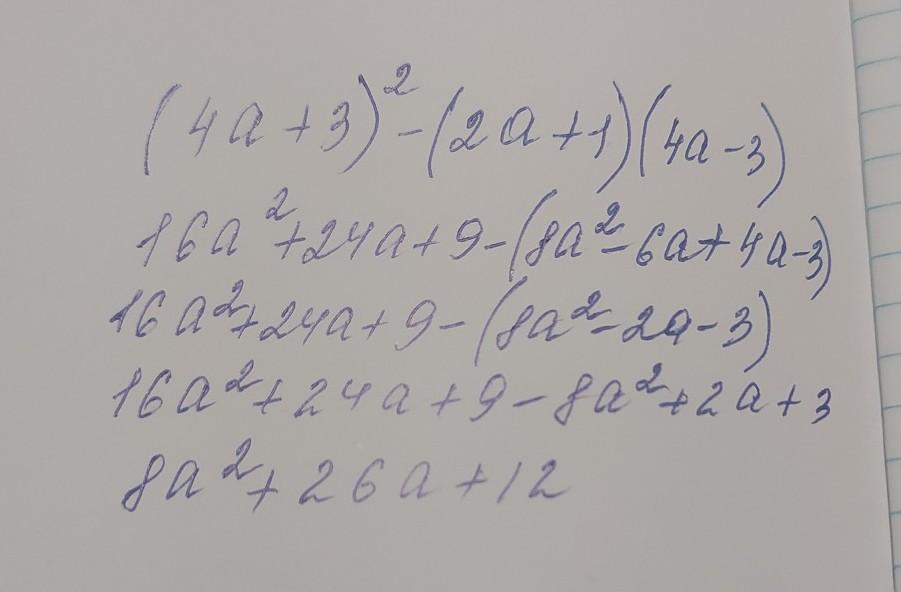 (4a+3)²-(2a+1)(4a-3)
16a²+24a+9-(8a²-6a+4a-3)
16a²+24a+9-(8a²-2a-3)
16a²+24a+9-8a²+2a+3
8a²+26a+12